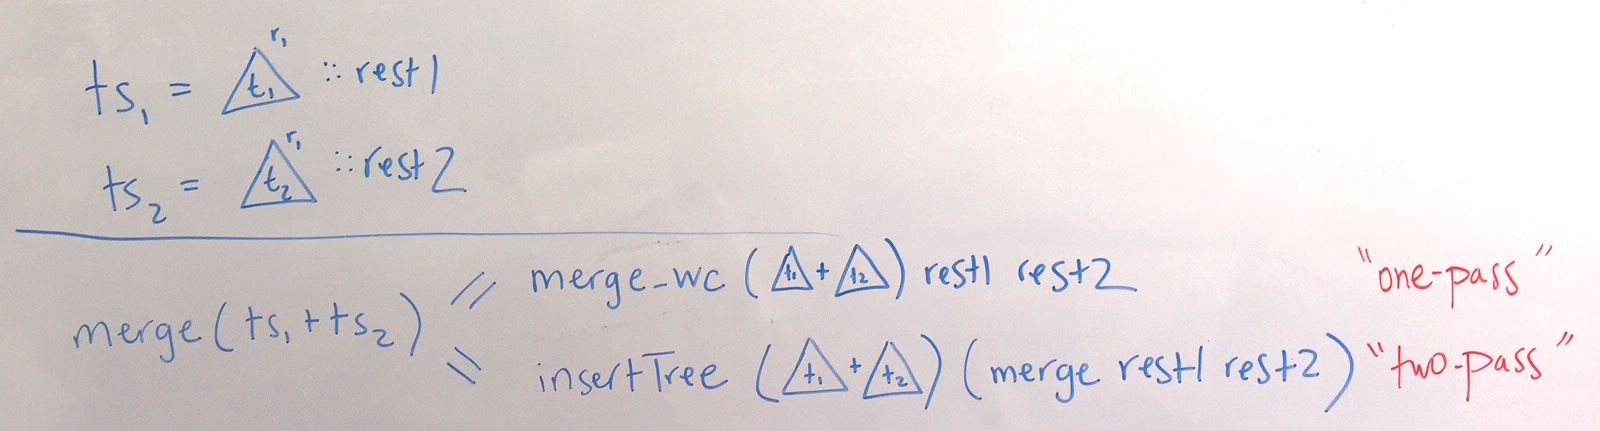 ts₁ = t₁ r₁ :: rest1
ts₂ = t₂ r₁ :: rest2
merge (ts₁ + ts₂)
= merge_wc (t₁ + t₂) rest1 rest2 "one-pass"
= insertTree (t₁ + t₂) (merge rest1 rest2) "two-pass"